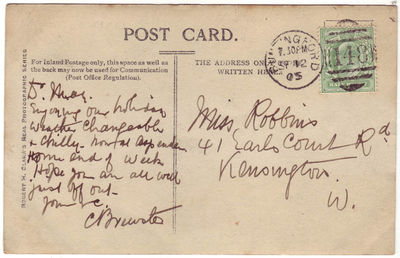 POST CARD.
For Inland Postage only, this space as well as
the back may now be used for Communication
(Post Office Regulation).
THE ADDRESS ON
WRITTEN HERE
ROBERT H. CLARK'S REAL PHOTOGRAPHIC SERIES
BUNTINGFORD
7.30PM
12
05
148
Dr May.
Enjoying our holiday
weather changeable
& chilly-
Home end of week
Hope you are all well
Just off out-
C Brewster
Miss Robbins
41 Earls Court Rd
Kensington.
W.